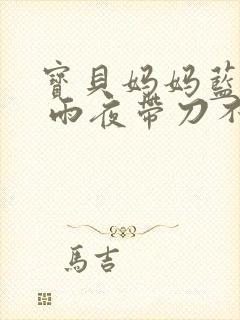 寶貝妈妈藍
雨夜帶刀不
馬吉